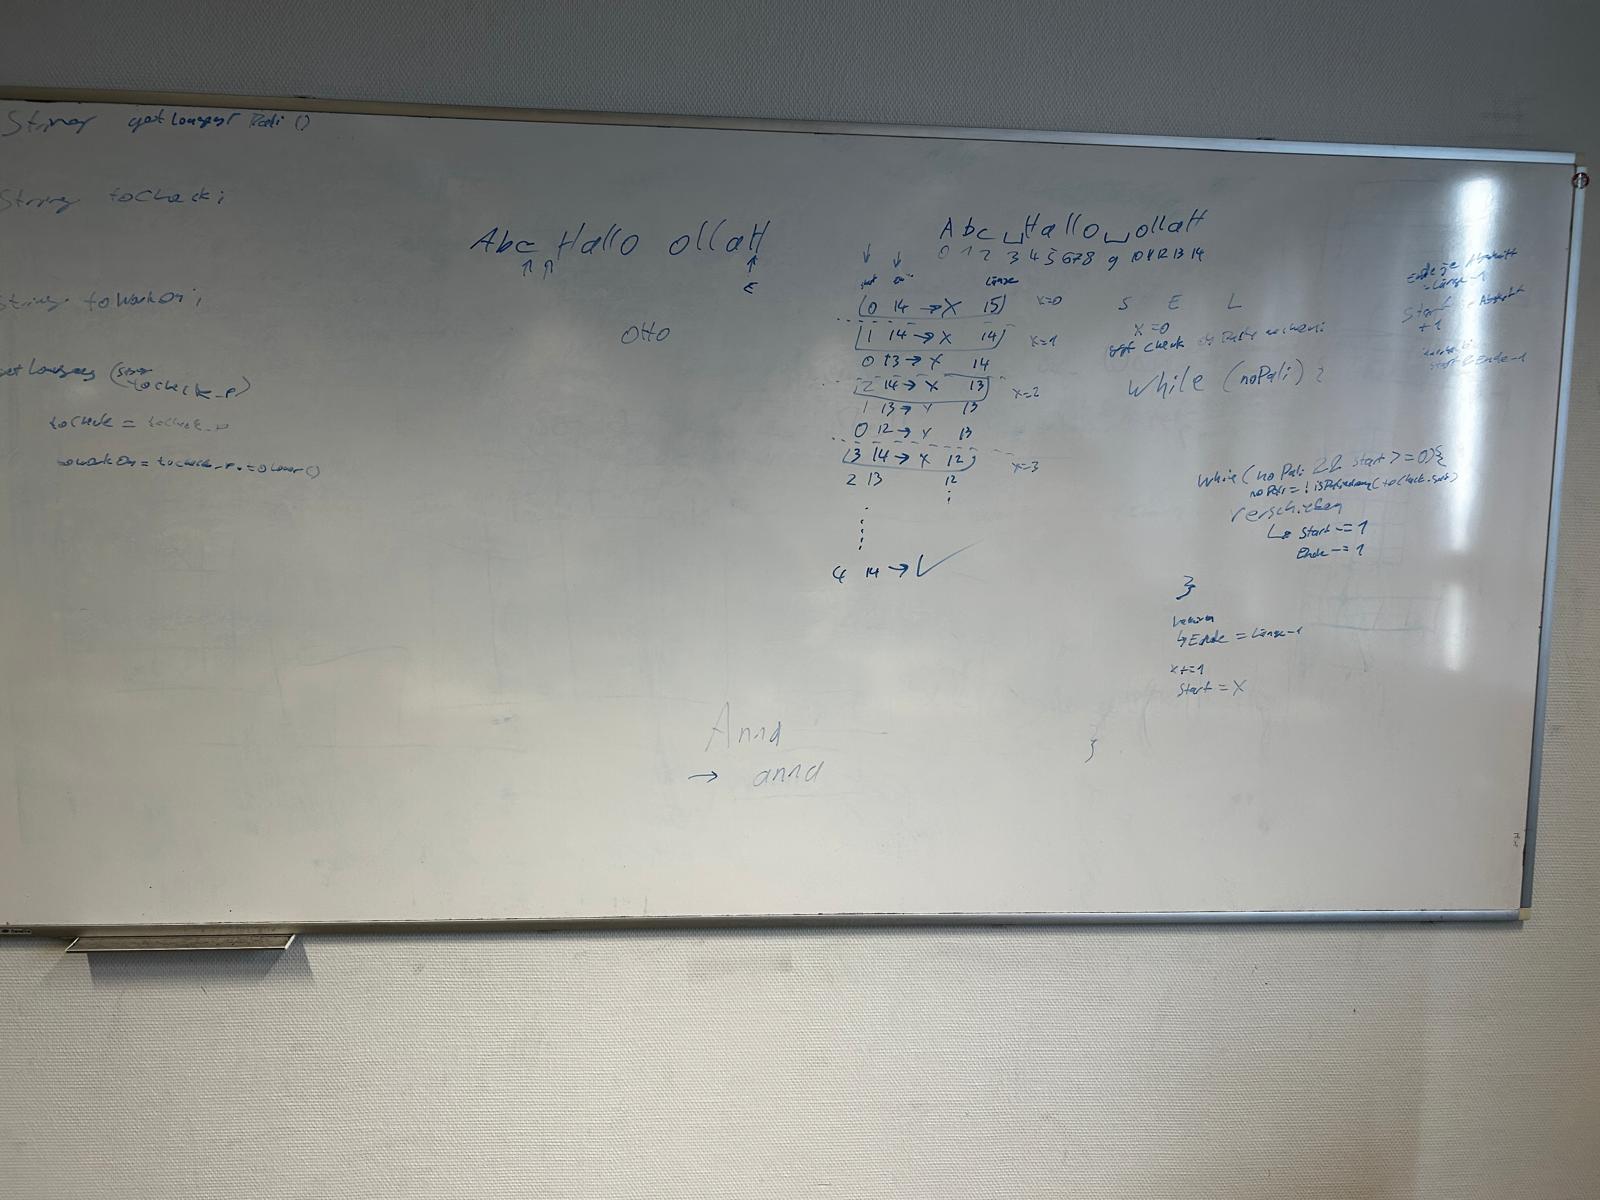 String getLongest Pali ()
String toCheck;
String toWorkOn;
getLongest (String
toCheck_p)
toCheck = toCheck_p
toWorkOn = toCheck_p.toLower()
Abc Hallo ollaH
E
OttO
Anna
→ anna
Abc␣Hallo␣ollaH
0 1 2 3 4 5 6 7 8 9 10 11 12 13 14
Länge
(0 14 → X 15) x=0
1 14 → X 14 x=1
0 13 → X 14
2 14 → X 13 x=2
1 13 → X 13
0 12 → X 13
3 14 → X 12 x=3
2 13 12
4 14 → ✓
S E L
x=0
check
while (noPali) {
while (noPali && start >= 0) {
noPali = ! isPalindrom(toCheck.
verschieben
↳ Start -= 1
Ende -= 1
}
↳ Ende = Länge-1
x+=1
Start = X
}
Ende je Abschnitt
= Länge-1
Start
+1
Start < Ende-1